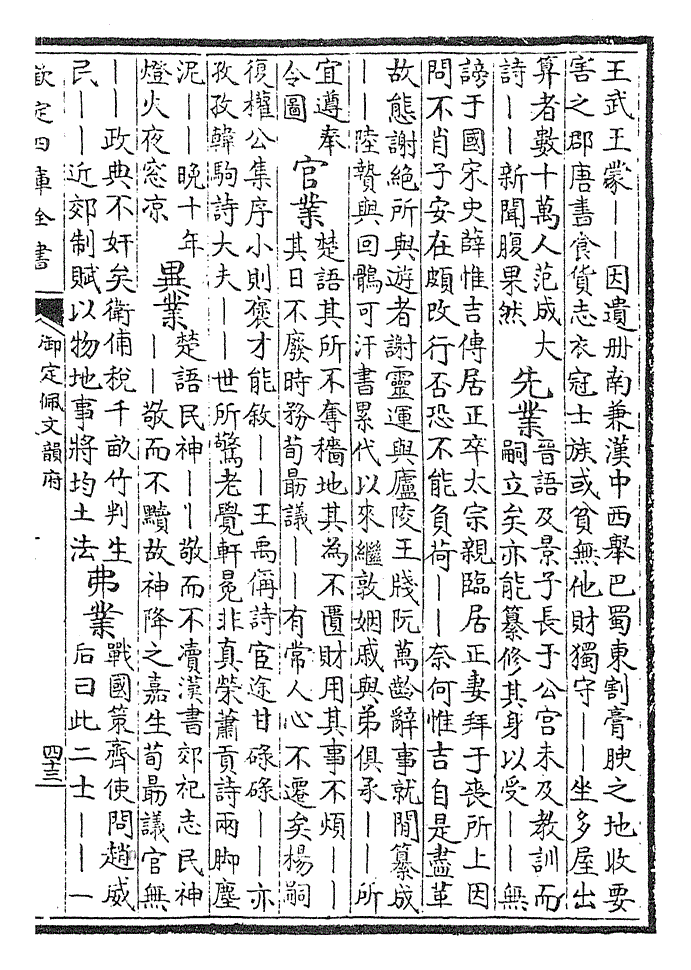 王武王蒙——因遺册南兼漢中西舉巴蜀東割膏腴之地收要
害之郡唐書食貨志衣冠士族或貧無他財獨守——坐多屋出
算者數十萬人范成大
詩——新聞腹果然
先業
晉語及景子長于公宫未及教訓而
嗣立矣亦能纂修其身以受——無
謗于國宋史薛惟吉傳居正卒太宗親臨居正妻拜于喪所上因
問不肖子安在頗改行否恐不能負荷——奈何惟吉自是盡革
故態謝絶所與遊者謝靈運與廬陵王牋阮萬齡辭事就閒纂成
——陸贄與回鶻可汗書累代以來繼敦姻戚與弟俱承——所
宜遵奉
令圖
官業
楚語其所不奪穡地其為不匱財用其事不煩——
其日不廢時務荀勗議——有常人心不遷矣楊嗣
復權公集序小則褒才能敘——王禹偁詩官途甘碌碌——亦
孜孜韓駒詩大夫——世所驚老覺軒冕非真榮蕭貢詩兩脚塵
泥——晚十年
燈火夜窓凉
異業
楚語民神——敬而不瀆漢書郊祀志民神
——敬而不黷故神降之嘉生荀勗議官無
——政典不奸矣衛俌稅千畝竹判生
民——近郊制賦以物地事將均土法
弗業
戰國策齊使問趙威
后曰此二士——一
欽定四庫全書
御定佩文韻府
四十三